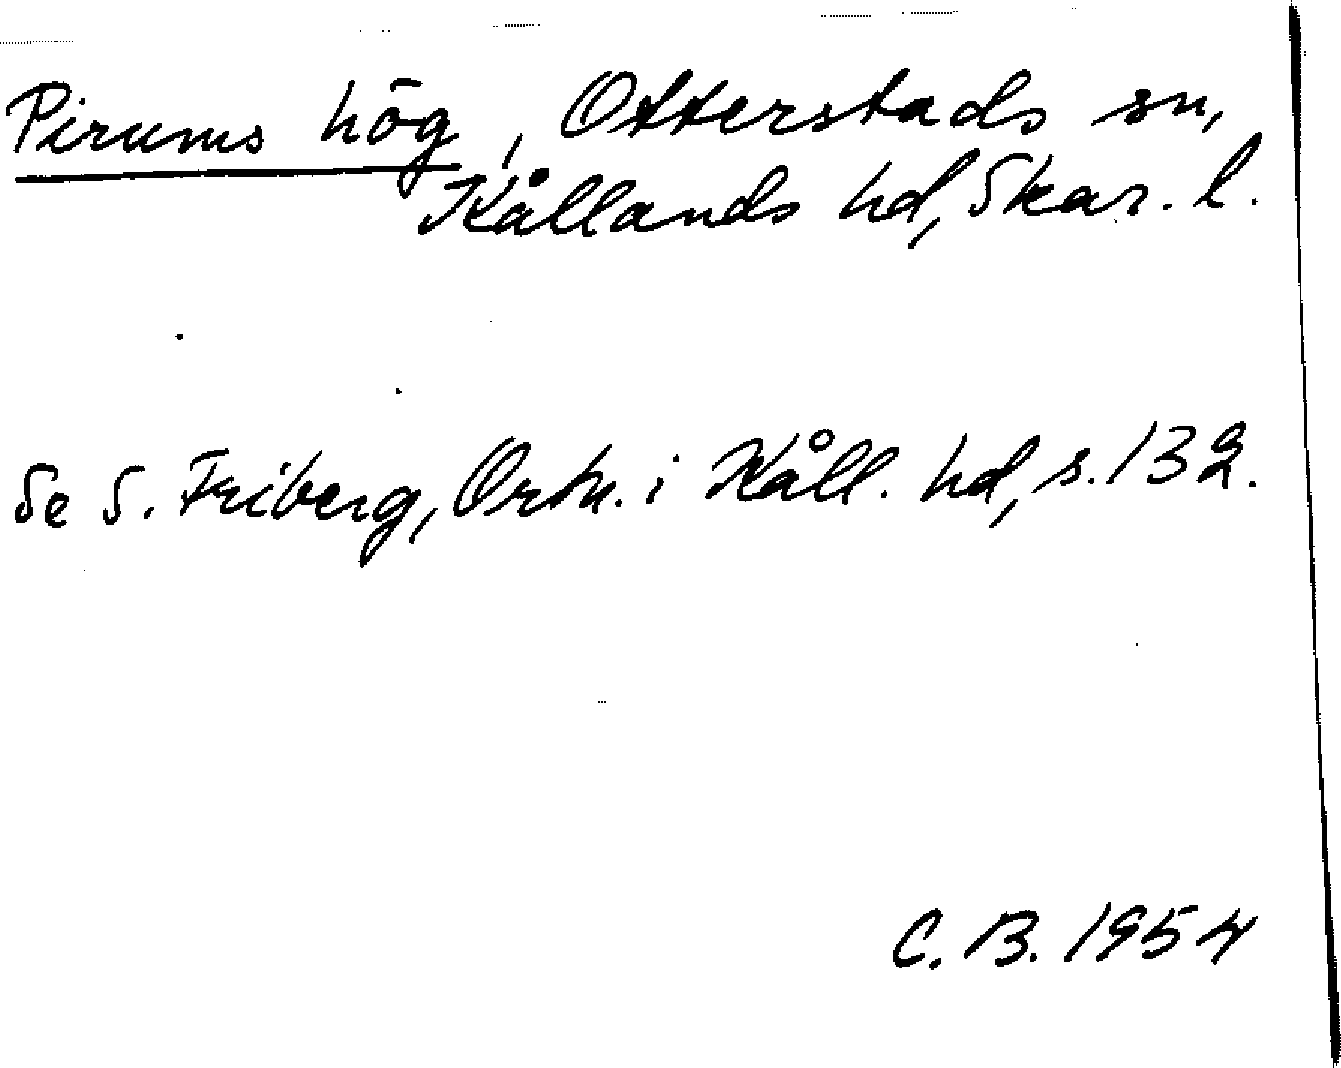 Pirums hög, Otterstads sn,
Kållands hd, Skar. l.
Se S. Friberg, Ortn. i Kåll. hd, s. 132.
C. B. 1954